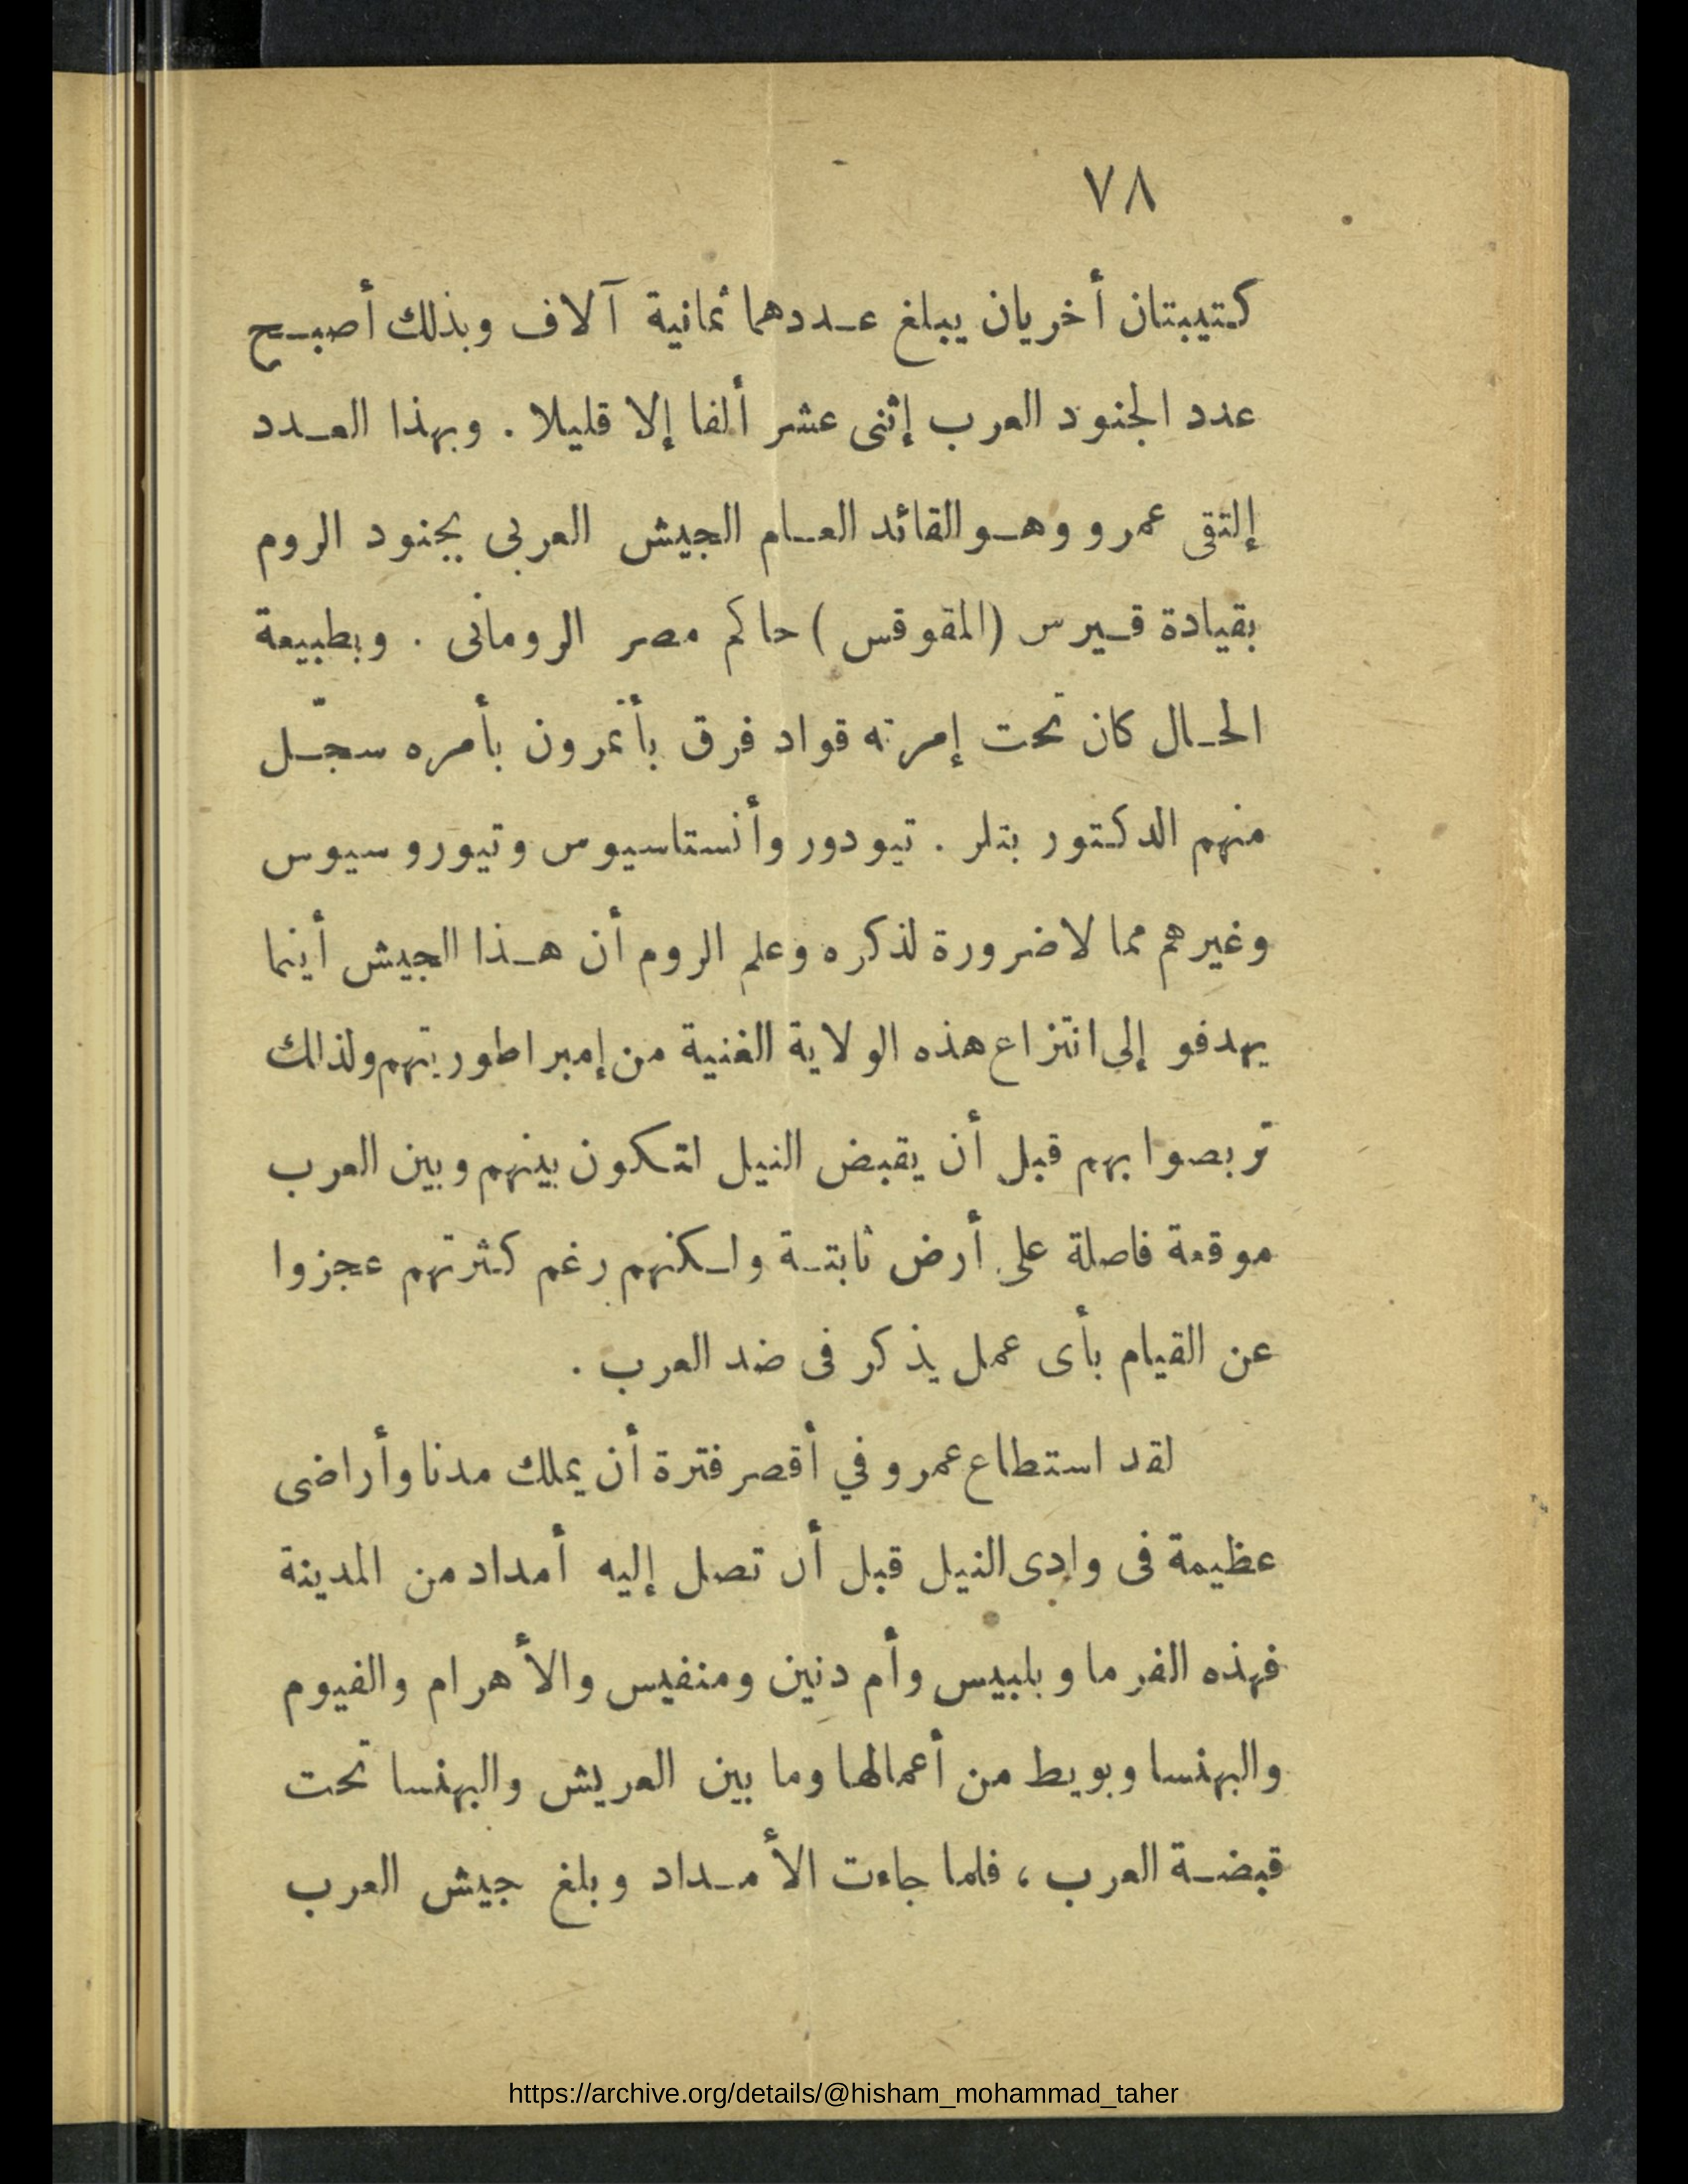 ٧٨
كتيبتان أخريان يبلغ عددهما ثمانية آلاف وبذلك أصبح
عدد الجنود العرب إثنى عشر ألفا إلا قليلا . وبهذا العدد
إلتقى عمرو وهو القائد العام الجيش العربى بجنود الروم
بقيادة قيرس (المقوقس) حاكم مصر الرومانى . وبطبيعة
الحال كان تحت إمرته قواد فرق بأتمرون بأمره سجّل
منهم الدكتور بتلر . تيودور وأنستاسيوس وتيوروسيوس
وغيرهم مما لا ضرورة لذكره وعلم الروم أن هذا الجيش أينما
يهدفو إلى انتزاع هذه الولاية الغنية من إمبراطوريتهم ولذلك
تربصوا بهم قبل أن يقبض النيل لتكون بينهم وبين العرب
موقعة فاصلة على أرض ثابتة ولكنهم رغم كثرتهم عجزوا
عن القيام بأى عمل يذكر فى ضد العرب .
لقد استطاع عمرو في أقصر فترة أن يملك مدنا وأراضى
عظيمة فى وادى النيل قبل أن تصل إليه أمداد من المدينة
فهذه الفرما وبلبيس وأم دنين ومنفيس والأهرام والفيوم
والبهنسا وبويط من أعمالها وما بين العريش والبهنسا تحت
قبضة العرب ، فلما جاءت الأمداد وبلغ جيش العرب
https://archive.org/details/@hisham_mohammad_taher